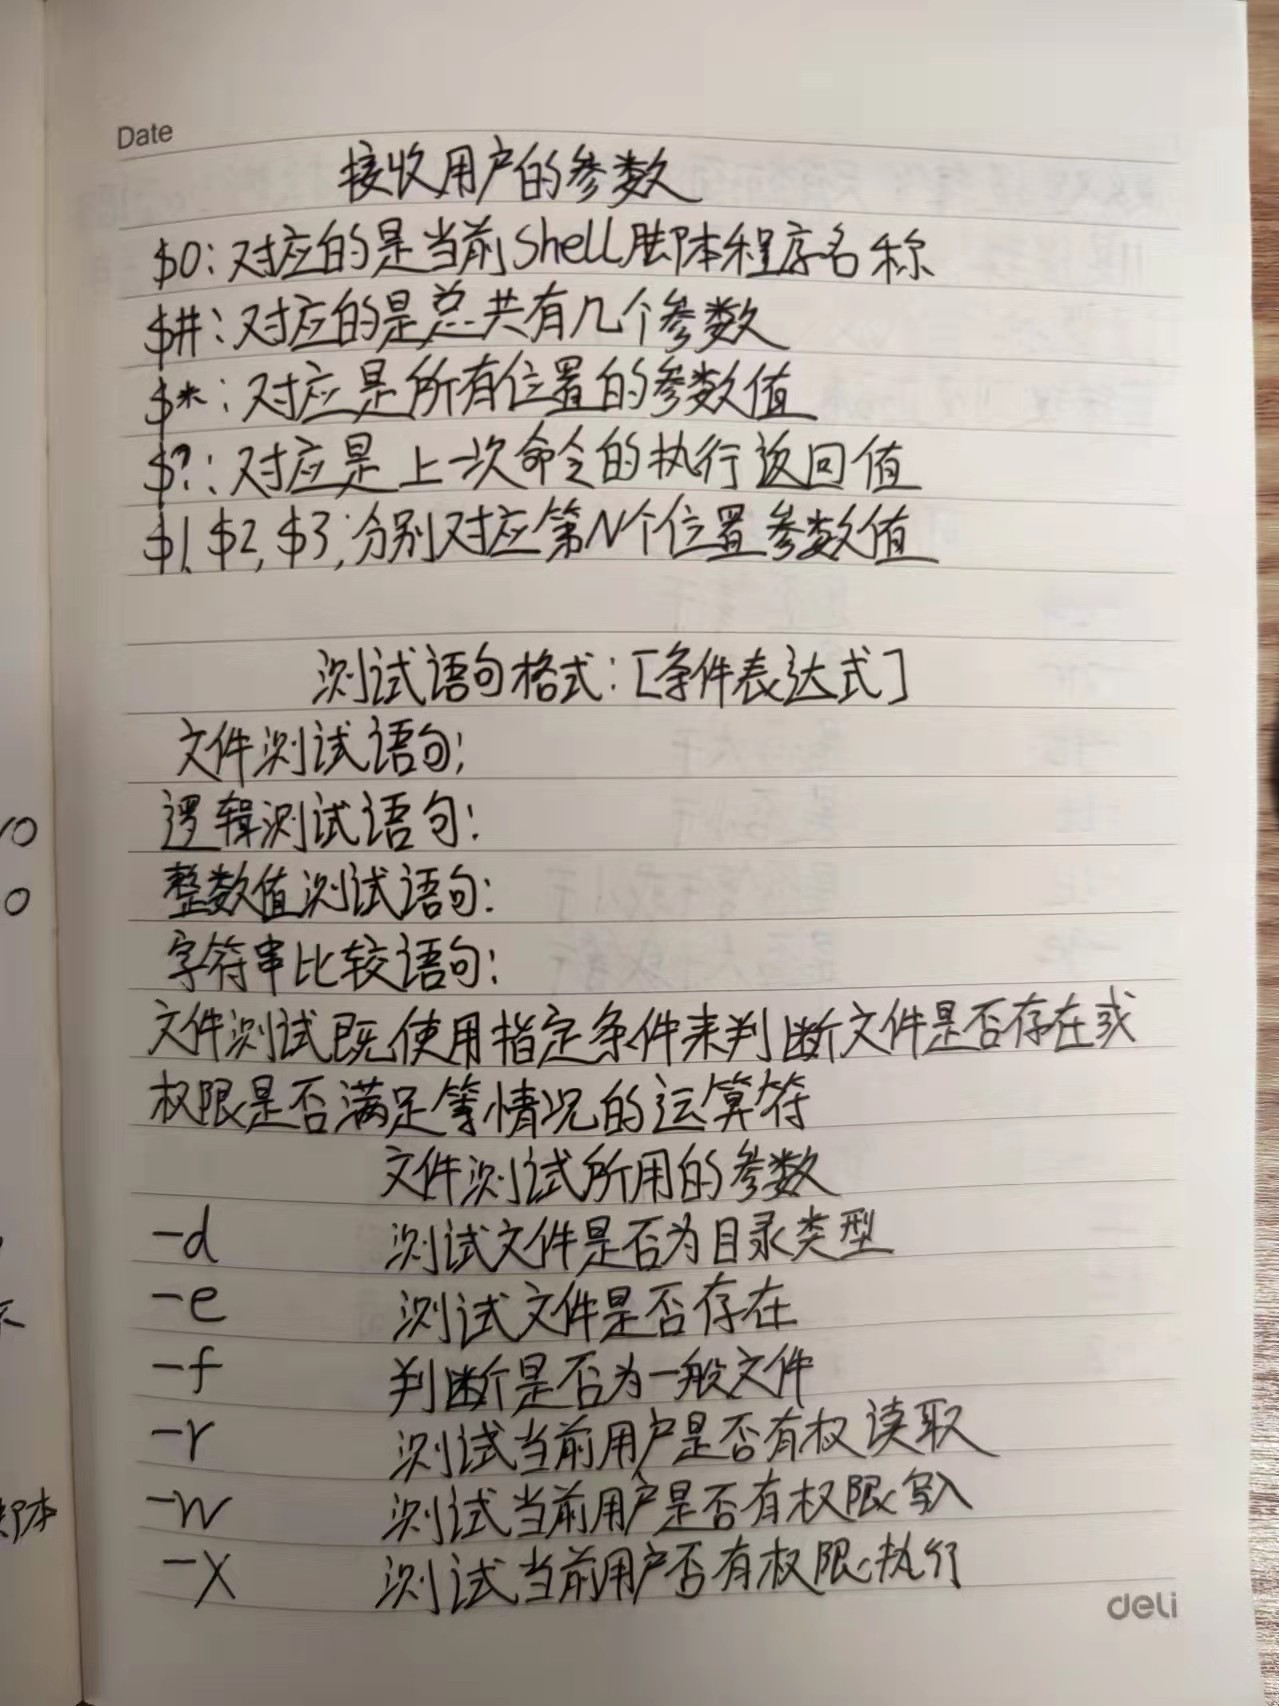 Date
接收用户的参数
$0:对应的是当前Shell脚本程序名称
$#:对应的是总共有几个参数
$*:对应是所有位置的参数值
$?:对应是上一次命令的执行返回值
$1,$2,$3;分别对应第N个位置参数值
测试语句格式:[条件表达式]
文件测试语句;
逻辑测试语句:
整数值测试语句:
字符串比较语句:
文件测试既使用指定条件来判断文件是否存在或
权限是否满足等情况的运算符
文件测试所用的参数
-d 测试文件是否为目录类型
-e 测试文件是否存在
-f 判断是否为一般文件
-r 测试当前用户是否有权读取
-w 测试当前用户是否有权限写入
-x 测试当前用户否有权限执行
deli